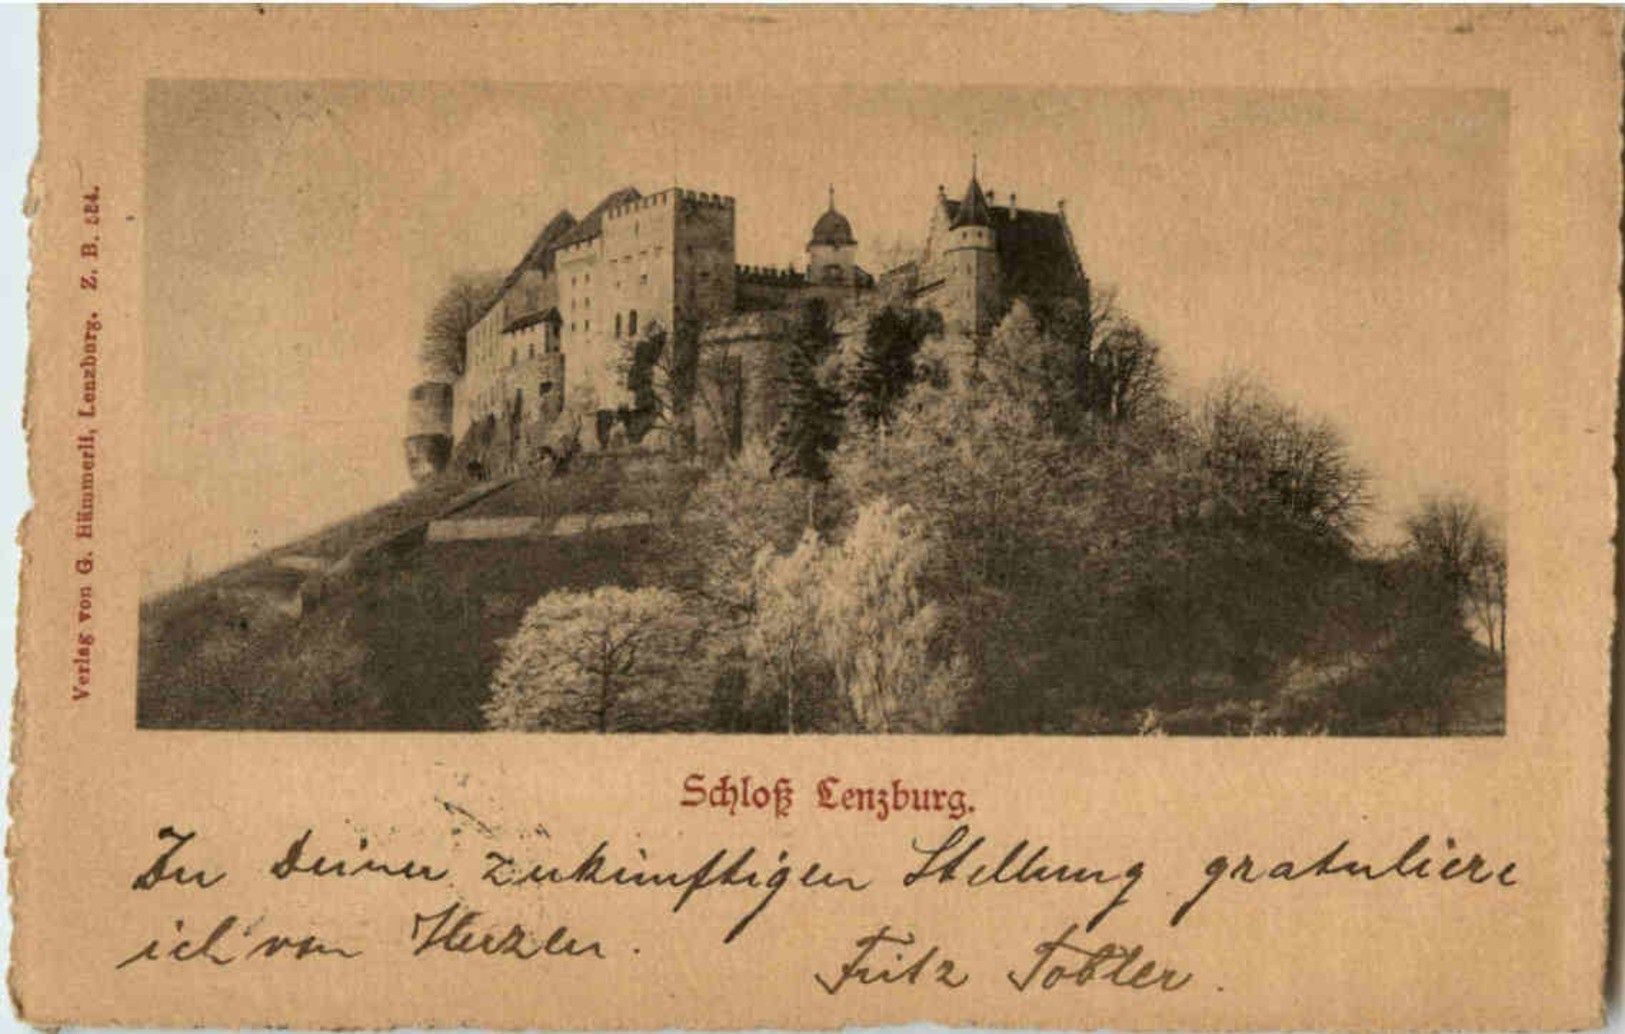 Verlag von G. Hämmerli, Lenzburg. Z. B. 524.
Schloß Lenzburg.
Zu Deiner zukünftigen Stellung gratuliere
ich von Herzen.
Fritz Tobler.